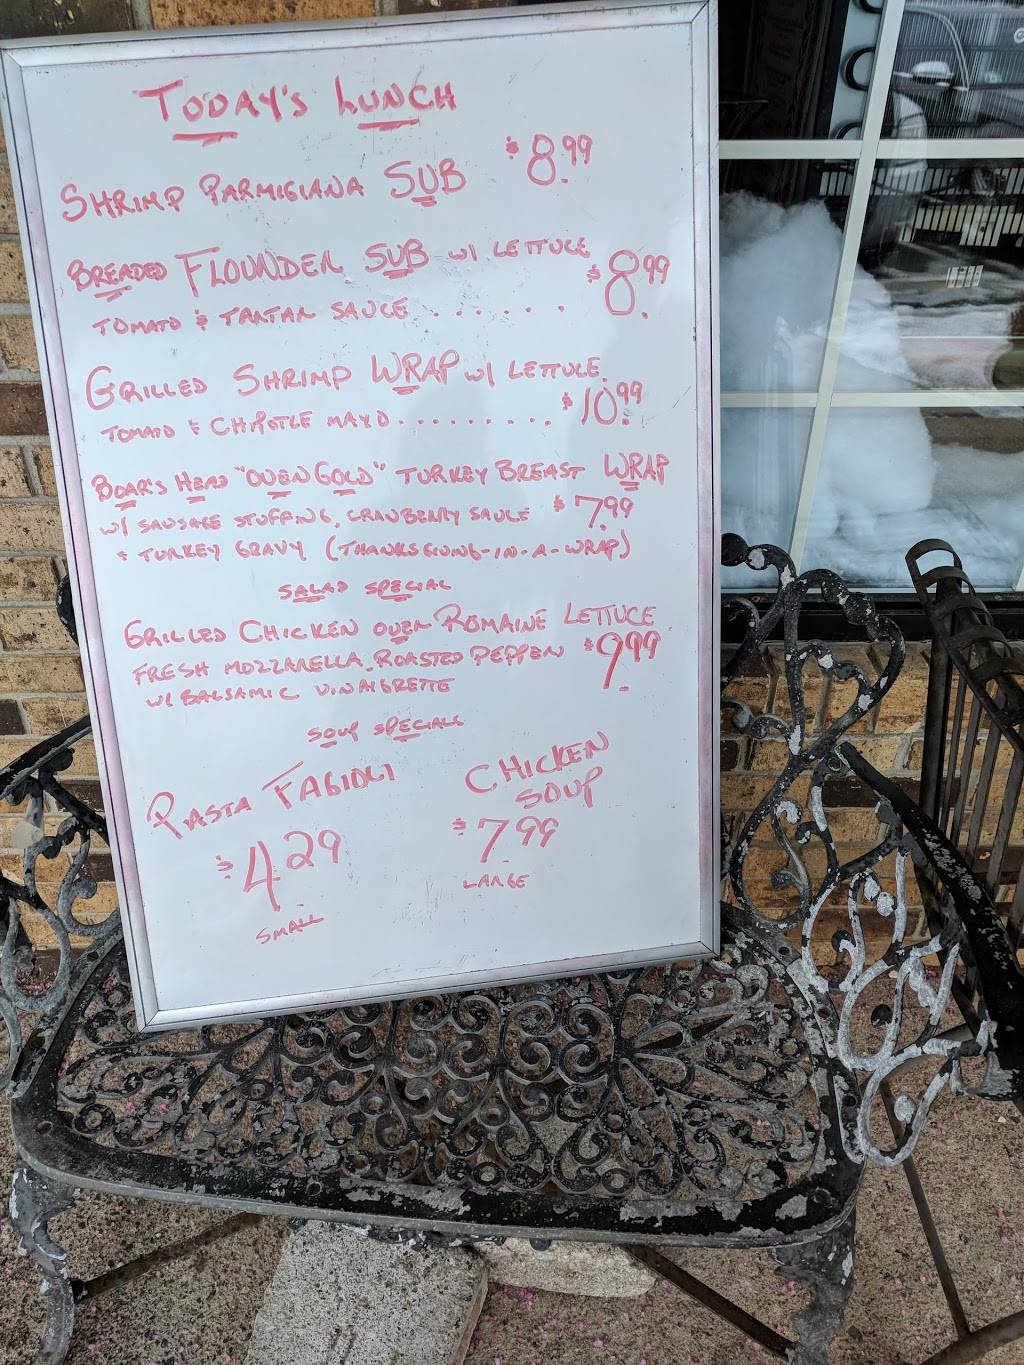 TODAY'S LUNCH
SHRIMP PARMIGIANA SUB $8.99
BREADED FLOUNDER SUB w/ LETTUCE
TOMATO & TARTAR SAUCE . . . . . . $8.99
GRILLED SHRIMP WRAP w/ LETTUCE
TOMATO & CHIPOTLE MAYO . . . . . . . . . $10.99
BOAR'S HEAD "OVENGOLD" TURKEY BREAST WRAP
w/ SAUSAGE STUFFING, CRANBERRY SAUCE $7.99
& TURKEY GRAVY (THANKSGIVING-IN-A-WRAP)
SALAD SPECIAL
GRILLED CHICKEN OVER ROMAINE LETTUCE
FRESH MOZZARELLA, ROASTED PEPPER $9.99
w/ BALSAMIC VINAIGRETTE
SOUP SPECIALS
PASTA FAGIOLI
$4.29
SMALL
CHICKEN
SOUP
$7.99
LARGE